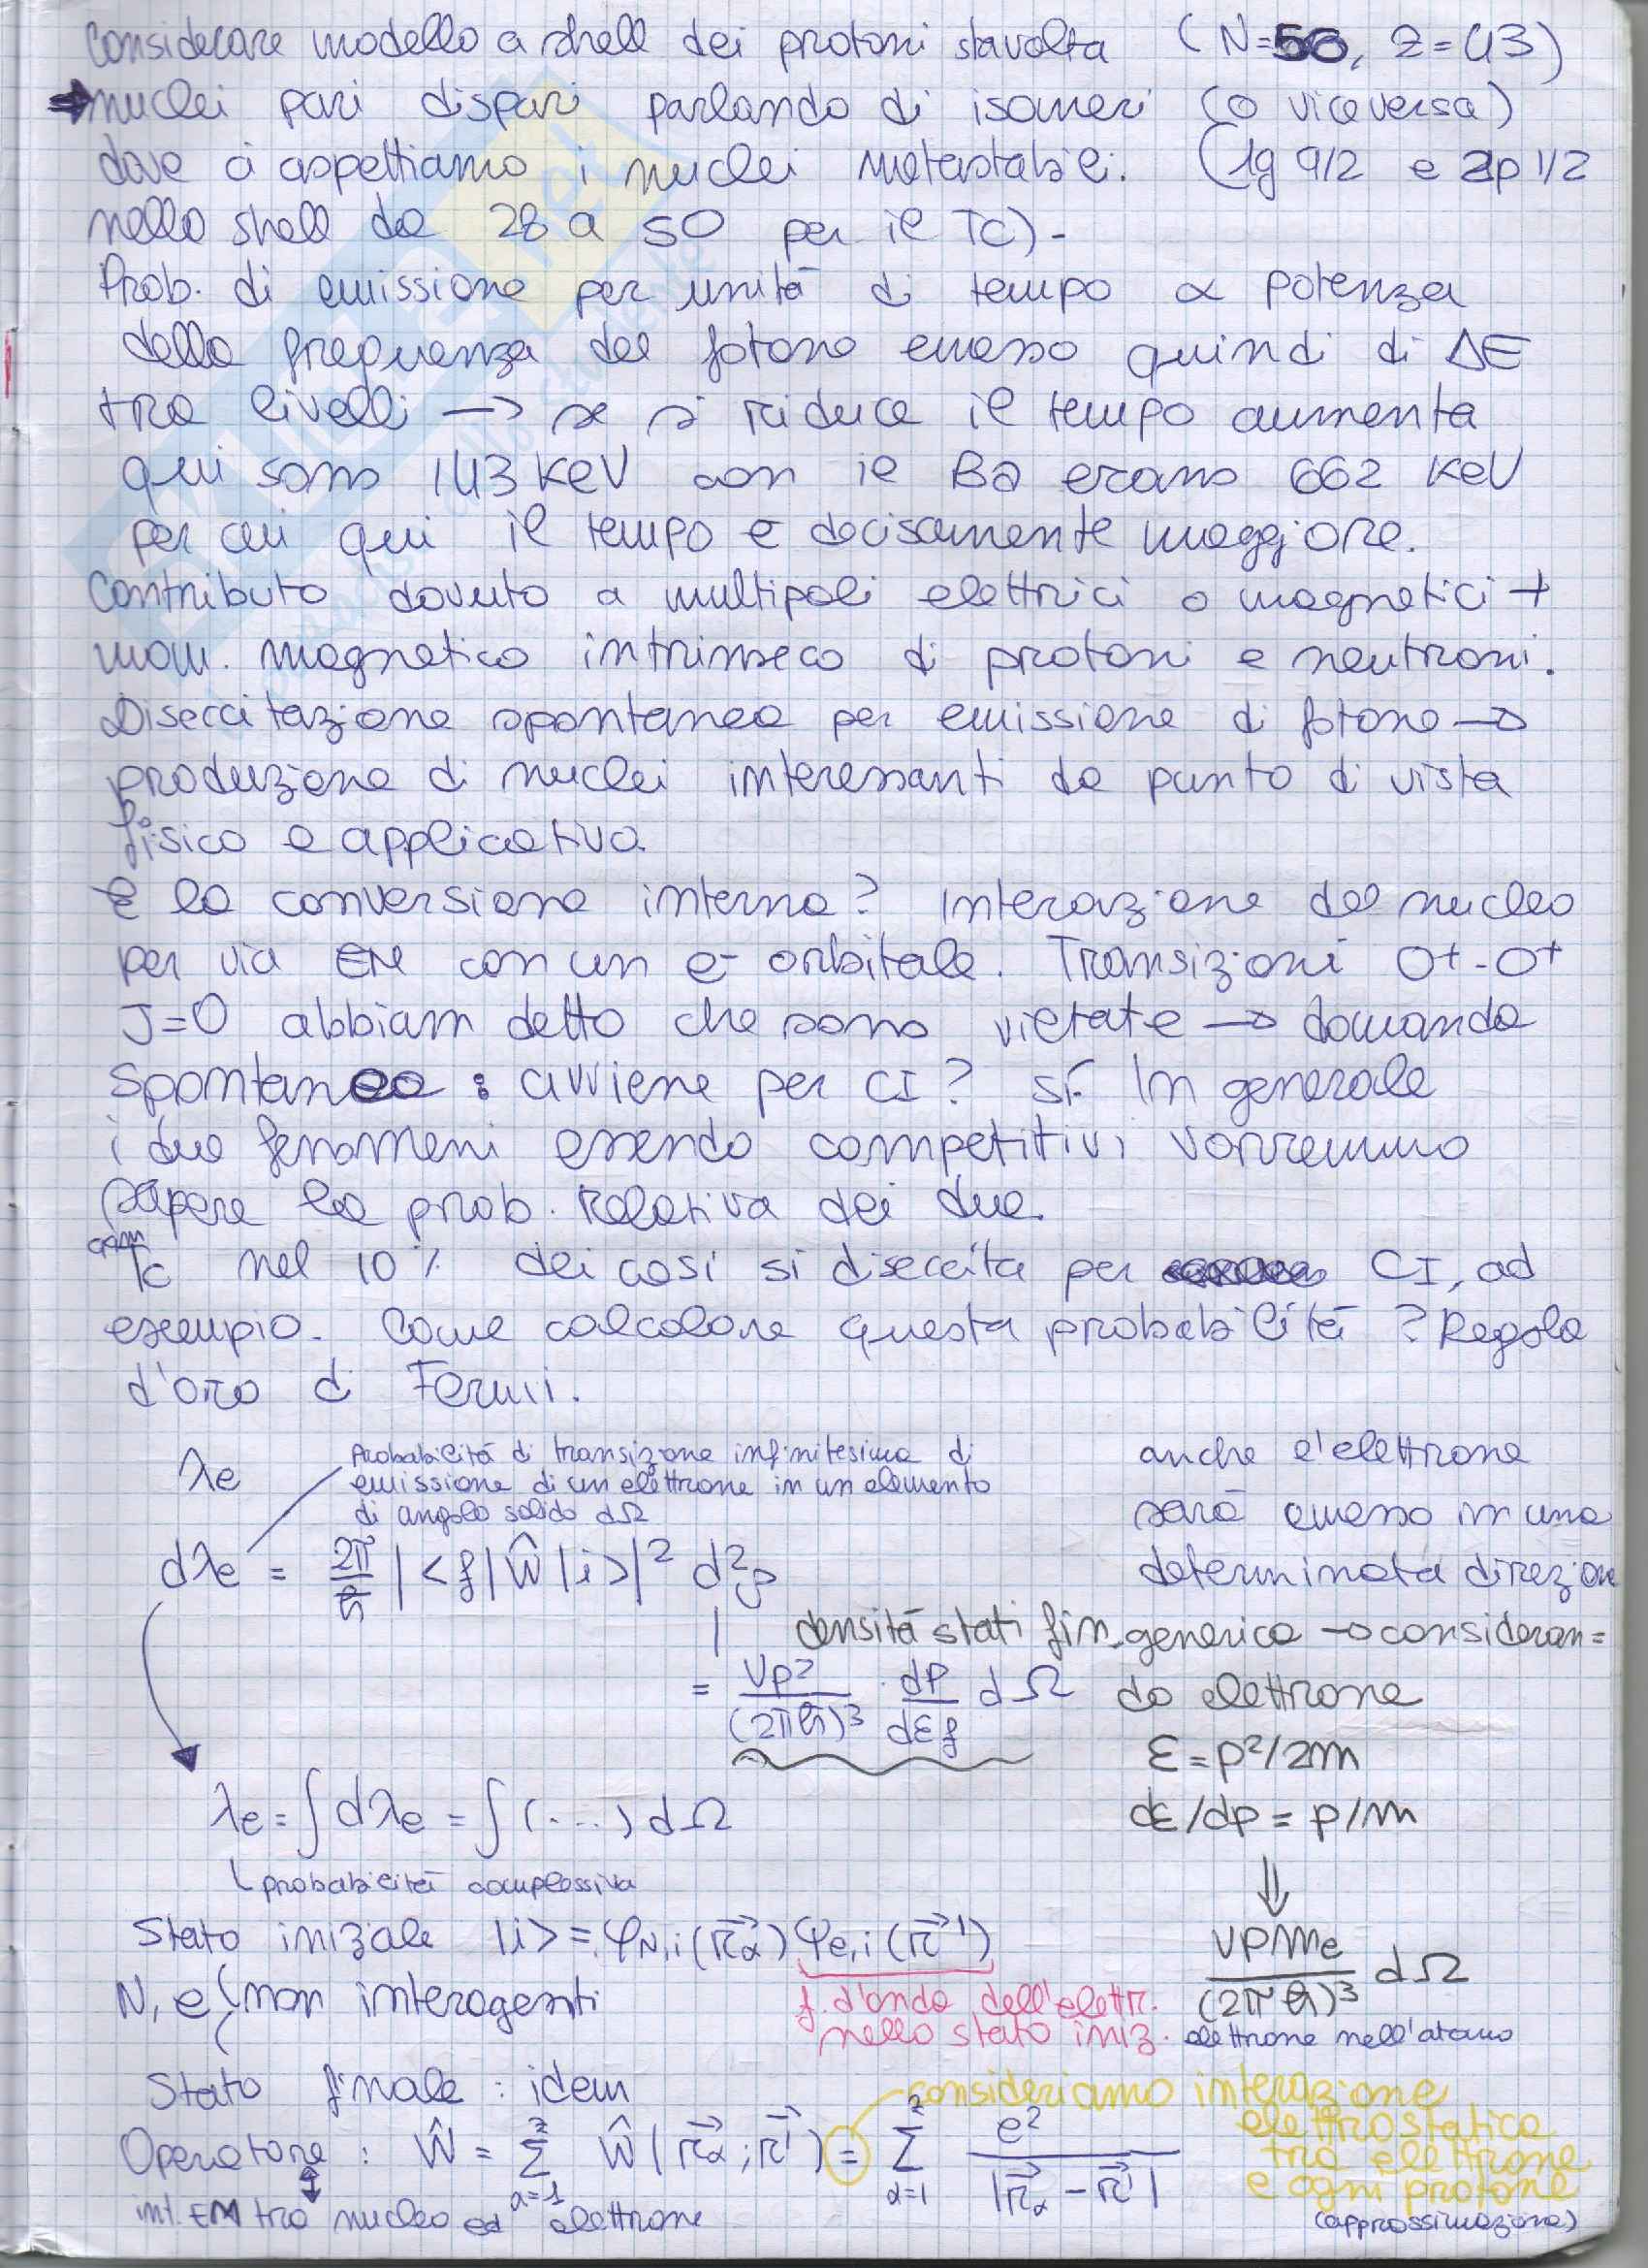 Considerare modello a shell dei protoni stavolta (N=56, Z=43)
→ nuclei pari dispari parlando di isomeri (o viceversa)
dove ci aspettiamo i nuclei metastabili. (1g 9/2 e 2p 1/2
nello shell da 28 a 50 per il Tc)-
Prob. di emissione per unità di tempo ∝ potenza
della frequenza del fotone emesso quindi di ΔE
tra livelli → se si riduce il tempo aumenta
qui sono 143 KeV con il Ba erano 662 KeV
per cui qui il tempo è decisamente maggiore.
Contributo dovuto a multipoli elettrici o magnetici +
mom. magnetico intrinseco di protoni e neutroni.
Diseccitazione spontanea per emissione di fotone →
produzione di nuclei interessanti da punto di vista
fisico e applicativo.
E la conversione interna? Interazione del nucleo
per via EM con un e- orbitale. Transizioni 0+-0+
J=0 abbiam detto che sono vietate → domanda
spontanea : avviene per CI? Sì. In generale
i due fenomeni essendo competitivi vorremmo
sapere la prob. relativa dei due.
99m Tc nel 10% dei casi si diseccita per CI, ad
esempio. Come calcolare questa probabilità? Regola
d'oro di Fermi.
λe
Probabilità di transizione infinitesima di
emissione di un elettrone in un elemento
di angolo solido dΩ
anche l'elettrone
sarà emesso in una
determinata direzione
dλe = 2π/ħ |<f|Ŵ|i>|² d²ρ
densità stati fin. generica → consideran=
do elettrone
= Vp²/(2πħ)³ · dp/dεf dΩ
ε = p²/2m
dε/dp = p/m
⇓
λe = ∫dλe = ∫(...) dΩ
probabilità complessiva
Stato iniziale |i> = φN,i(r⃗α) φe,i(r⃗')
VPme/(2πħ)³ dΩ
N, e (non interagenti
f. d'onda dell'elettr.
nello stato iniz.
elettrone nell'atomo
Stato finale : idem
consideriamo interazione
elettrostatica
tra elettrone
e ogni protone
(approssimazione)
Operatore : Ŵ = Σ α=1 z Ŵ(r⃗α; r⃗') = Σ α=1 z e²/|r⃗α - r⃗'|
int. EM tra nucleo ed elettrone